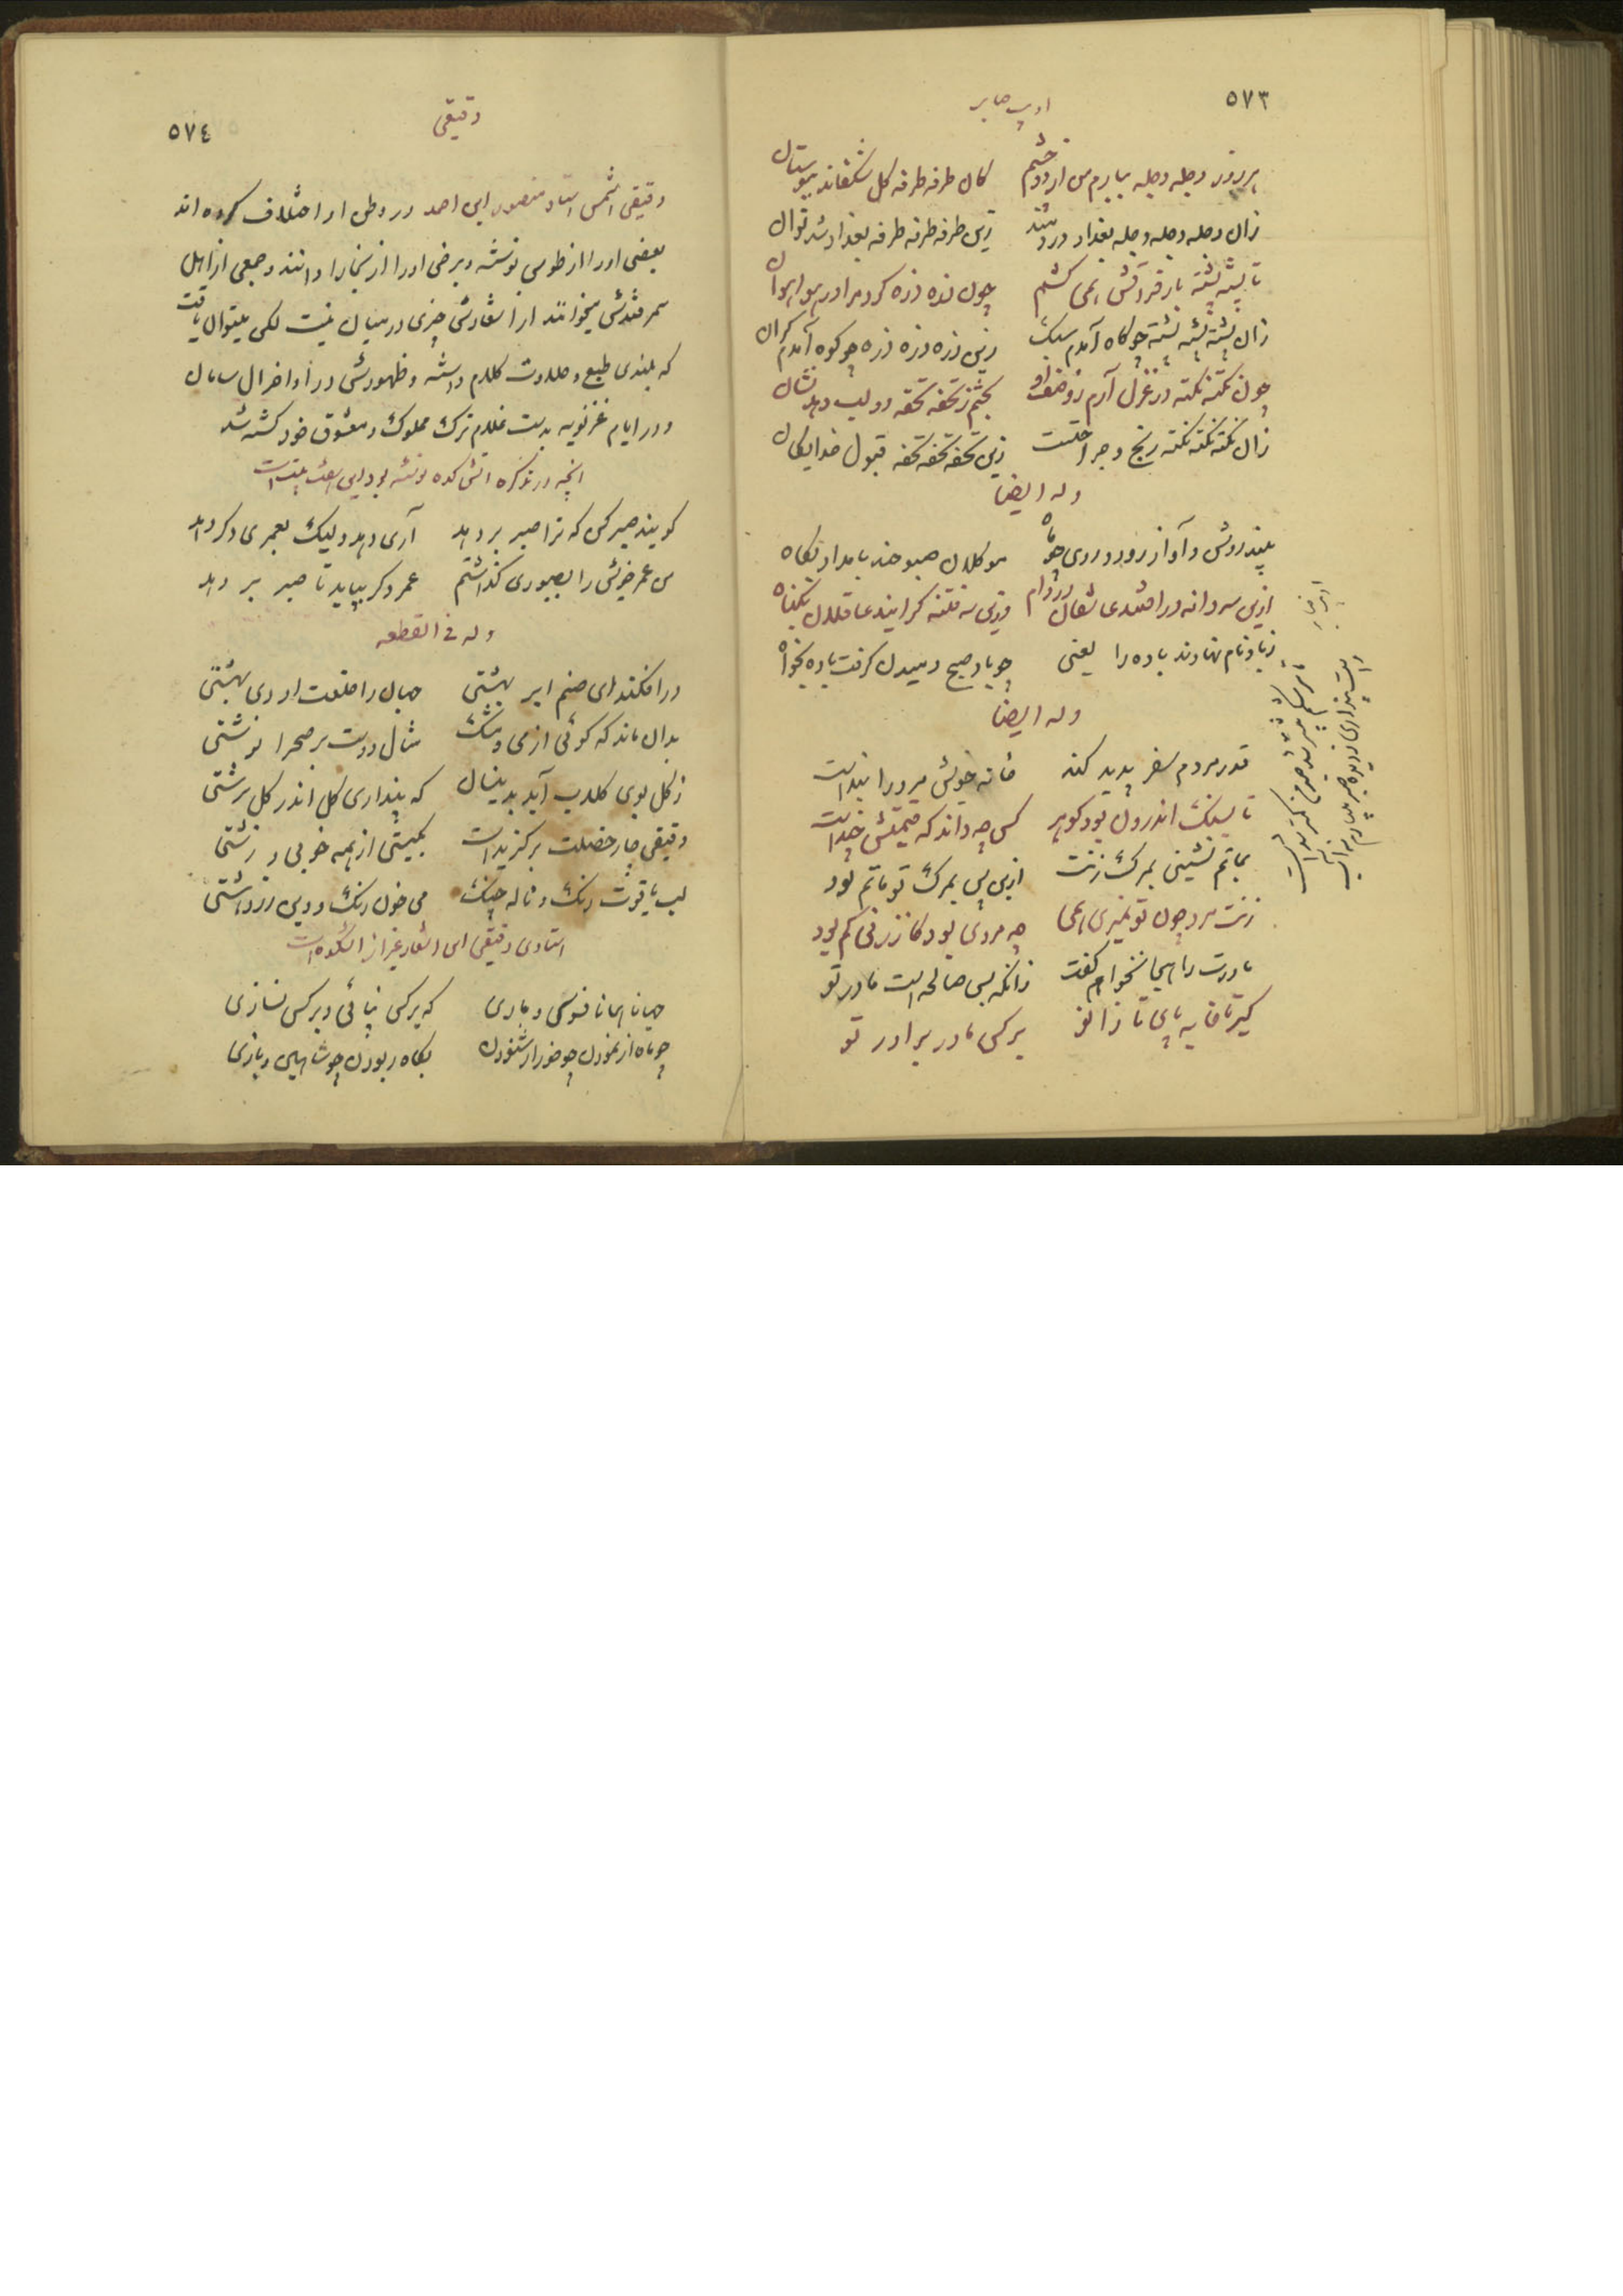 ٥٧٣
ادیب صابر
هر روز دجله دجله ببارم من از دو چشم کان طرفه طرفه گل شکفاند ببوستان
زان دجله دجله دجله بغداد در دو شد زین طرفه طرفه طرفه بغداد شد توان
تا پشته پشته بار فراقش همی کشم چون ذره ذره کرد مرا در هوا هوان
زان پشته پشته پشته چو کاه آمدم سبک زین ذره ذره ذره چو کوه آمدم گران
چون نکته نکته در غزل آرم ز وصف او بخشم ز تحفه تحفه دو لب دهد نشان
زان نکته نکته نکته رنج و جراحتست زین تحفه تحفه تحفه قبول خدایگان
وله ایضا
بلند روش و آواز رود و روی چو ماه موکلان صبوحند بامداد پگاه
ازین سه دانه در افتند عاشقان در دام وزین سه فتنه گرایند عاقلان بگناه
زباد نام نهادند باده را یعنی چو باد صبح دمیدن گرفت باده بخواه
وله ایضا
قدر مردم سفر پدید کند خانه خویش مرد را بند است
تا بسنگ اندرون بود گوهر کس چه داند که قیمتش چند است
بماتم نشینی بمرگ زنت ازین پس بمرگ تو ماتم بود
زنت مرد چون تو نمیری همی چه مردی بود کز زنی کم بود
مادرت را هجا نخواهم گفت زانکه بس صالحه است مادر تو
کیر تا خایه پای تا زانو بر کس مادر برادر تو
٥٧٤
دقیقی
دقیقی اسمش استاد منصور ابن احمد در وطن او اختلاف کرده اند
بعضی او را از طوس نوشته و برخی او را از بخارا دانند و جمعی از اهل
سمرقندش میخوانند از اشعارش چیزی در میان نیست لکن میتوان یافت
که بلندی طبع و حلاوت کلام داشته و ظهورش در اواخر آل سامان
و در ایام غزنویه بدست غلام ترک مملوک و معشوق خود کشته شد
آنچه در تذکره آتشکده نوشته بود این هفت بیت است
گویند صبر کن که ترا صبر بر دهد آری دهد ولیک بعمری دگر دهد
من عمر خویش را بصبوری گذاشتم عمر دگر بباید تا صبر بر دهد
وله فی القطعه
درافکند ای صنم ابر بهشتی جهان را خلعت اردی بهشتی
بدان ماند که گوئی از می و مشک مثال دوست بر صحرا نوشتی
ز گل بوی گلاب آید بدینسان که پنداری گل اندر گل سرشتی
دقیقی چار خصلت برگزیدست بگیتی از همه خوبی و زشتی
لب یاقوت رنگ و ناله چنگ می خون رنگ و دین زردهشتی
استادی دقیقی این اشعار غیر از آتشکده است
جهانا همانا فسوسی و بازی که بر کس نپائی و بر کس نسازی
چو ماه از نمودن چو خور از شنودن بگاه ربودن چو شاهین و بازی